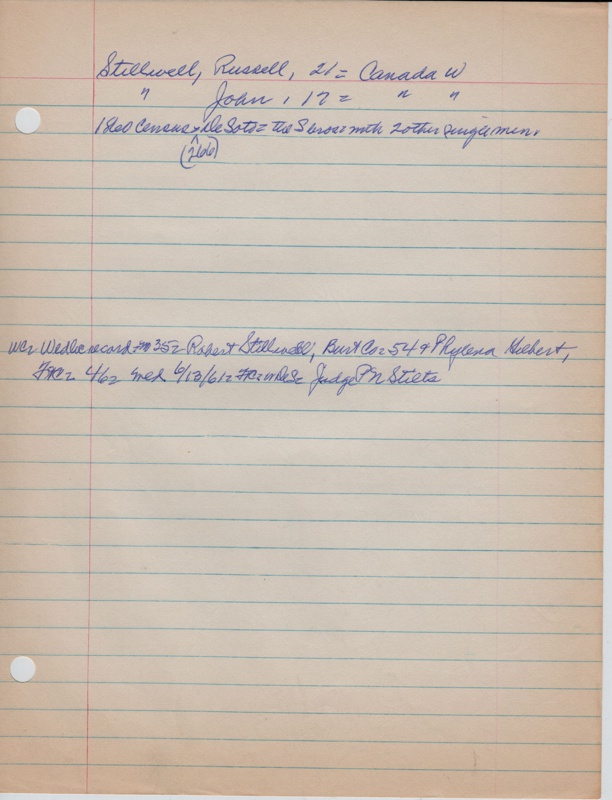 Stillwell, Russell, 21 = Canada W
" John, 17 = " "
1860 Census = DeSoto = the S bros = with 2 other single men.
(266)
WCz Wedlic record #m 35 = Robert Stillwell, Burt Co = 54 + Phylena Hilbert,
46 = wed 6/13/61 = Judge PN Stilts